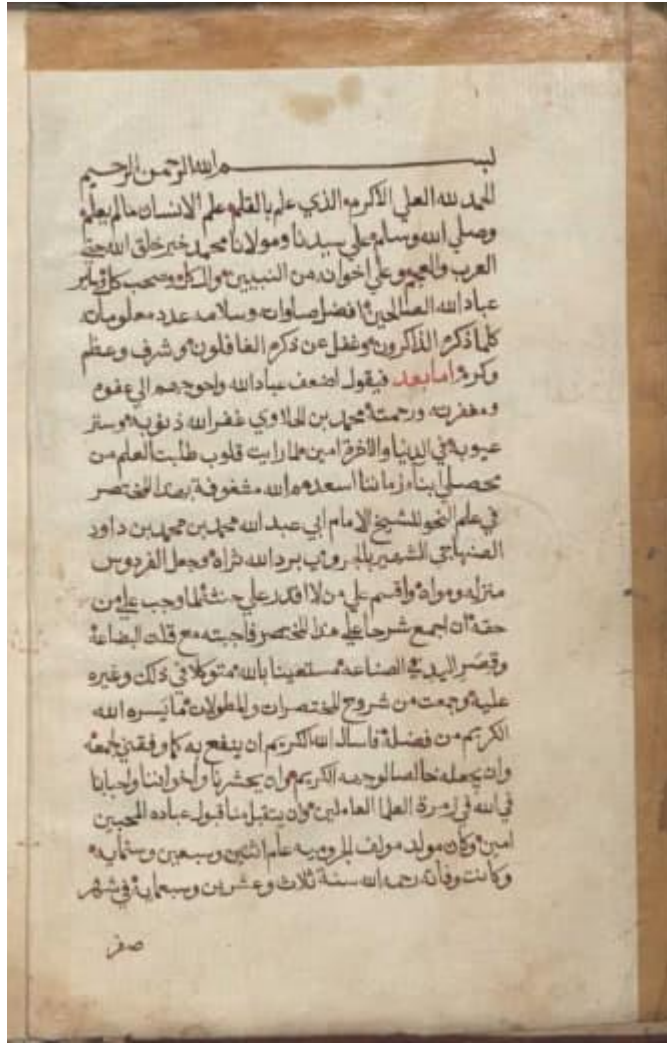 بسم الله الرحمن الرحيم
الحمد لله العلي الاكرم الذي علم بالقلم علم الانسان ما لم يعلم
وصلي الله وسلم علي سيدنا ومولانا محمد خير خلق الله حتي
العرب والعجم وعلي اخوانه من النبيين وال كل وصحب كل وساير
عباد الله الصالحين افضل صلواته وسلامه عدد معلوماته
كلما ذكره الذاكرون وغفل عن ذكره الغافلون وشرف وعظم
وكرم اما بعد فيقول اضعف عباد الله واحوجهم الي عفوه
ومغفرته ورحمته محمد بن الحلاوي غفر الله ذنوبه وستر
عيوبه في الدنيا والاخرة امين لما رايت قلوب طلبت العلم من
محصلي ابناء زماننا اسعدهم الله مشغوفة بهذا المختصر
في علم النحو للشيخ الامام ابي عبد الله محمد بن محمد بن داود
الصنهاجي الشهير بالجروم برد الله ثراه وجعل الفردوس
منزله وماواه واقسم علي من لا اقدر علي حنثه لما وجب علي من
حقه ان اجمع شرحا علي هذا المختصر فاجبته مع قلت البضاعة
وقصر اليد في الصناعه مستعينا بالله متوكلا في ذلك وغيره
عليه وجمعت من شروح المختصرات والمطولات ما يسره الله
الكريم من فضله فاسال الله الكريم ان ينفع به كما وفقني لجمعه
وان يجعله خالصا لوجهه الكريم وان يحشرنا واخواننا واحبابنا
في الله في زمرة العلما العاملين وان يتقبل منا قبول عباده المحبين
امين وكان مولد مولف الجروميه عام اثنين وسبعين وستمايه
وكانت وفاته رحمه الله سنة ثلاث وعشرين وسبعمايه في شهر
صفر